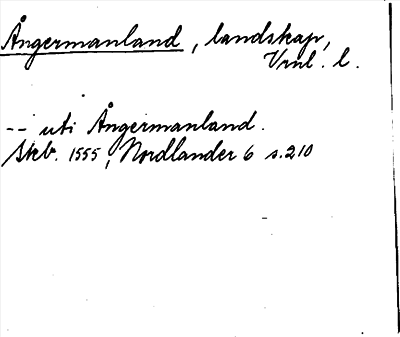 Ångermanland, landskap,
Vrnl. l.
-- uti Ångermanland.
Skb. 1555, Nordlander 6 s.210